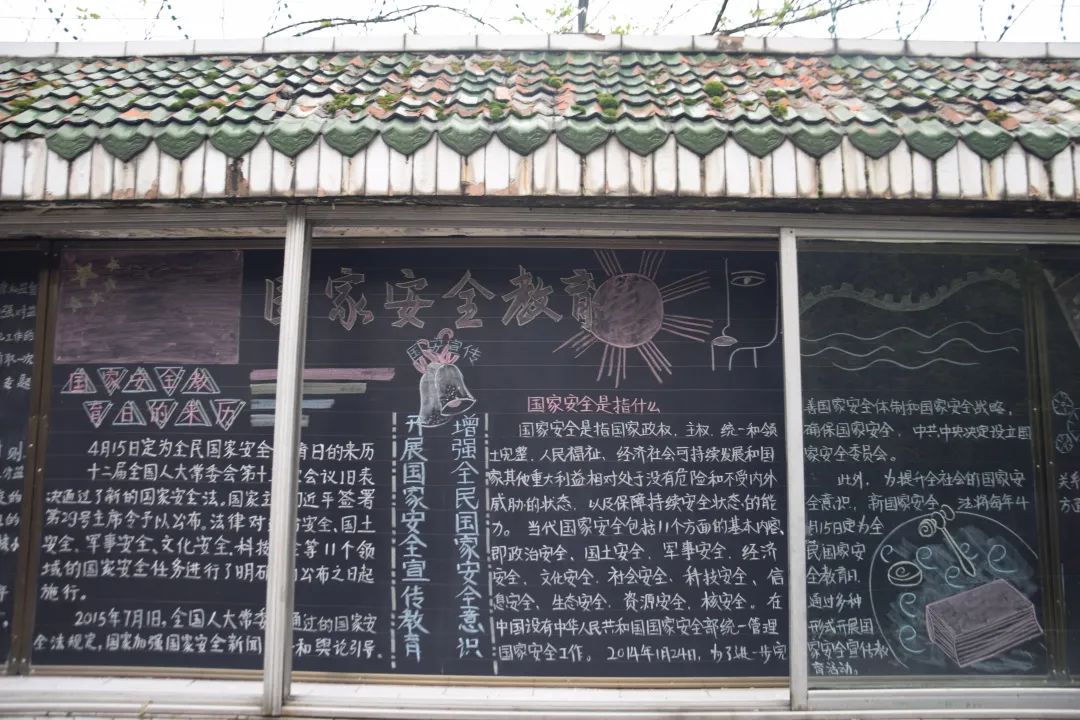 国家安全教育
国家安全教
育日的来历
4月15日定为全民国家安全 育日的来历
十二届全国人大常委会第十 次会议1日表
决通过了新的国家安全法。国家主 近平签署
第29号主席令予以公布。法律对 安全、国土
安全、军事安全、文化安全、科技 全等11个领
域的国家安全任务进行了明确 公布之日起
施行。
2015年7月1日,全国人大常委 通过的国家安
全法规定,国家加强国家安全新闻 和舆论引导。
宣传
开展国家安全宣传教育
增强全民国家安全意识
国家安全是指什么
国家安全是指国家政权、主权、统一和领
土完整、人民福祉、经济社会可持续发展和国
家其他重大利益相对处于没有危险和不受内外
威胁的状态,以及保障持续安全状态的能
力。当代国家安全包括11个方面的基本内容,
即政治安全、国土安全、军事安全、经济
安全、文化安全、社会安全、科技安全、信
息安全、生态安全、资源安全、核安全。在
中国设有中华人民共和国国家安全部统一管理
国家安全工作。2014年1月24日,为了进一步完
善国家安全体制和国家安全战略,
确保国家安全,中共中央决定设立国
家安全委员会。
此外,为提升全社会的国家安
全意识,新国家安全法将每年4
月15日定为全
民国家安
全教育日,
通过多种
形式开展国
家安全宣传教
育活动。